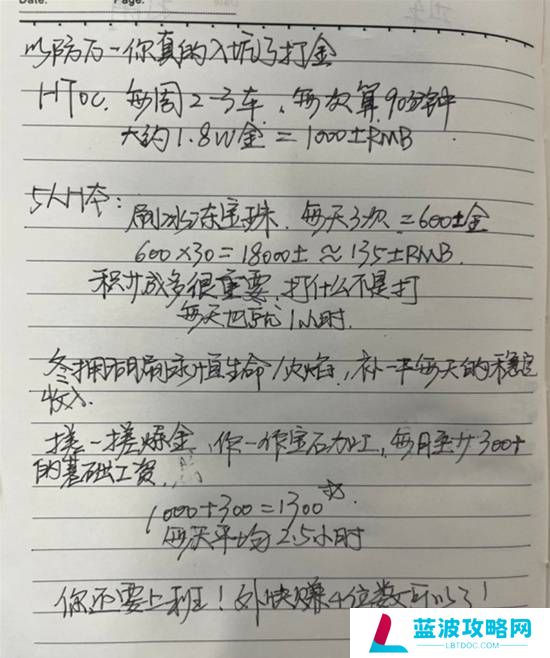 Date:
Page:
以防万一你真的入坑了打金
HTOC. 每周2-3车, 每次算90分钟
大约1.8W金 = 1000±RMB
5人H本:
刷冰冻宝珠. 每天3次 = 600±金
600×30 = 18000± ≈ 135±RMB.
积少成多很重要, 打什么不是打
每天也就1小时.
冬拥湖刷永恒生命/火焰, 补一下每天的稳定
收入.
搓一搓炼金, 你一作宝石加工, 每月至少300+
的基础工资.
1000+300=1300
每天平均2.5小时
你还要上班! 外快赚4位数可以了!
蓝波攻略网
LBTDOC.COM